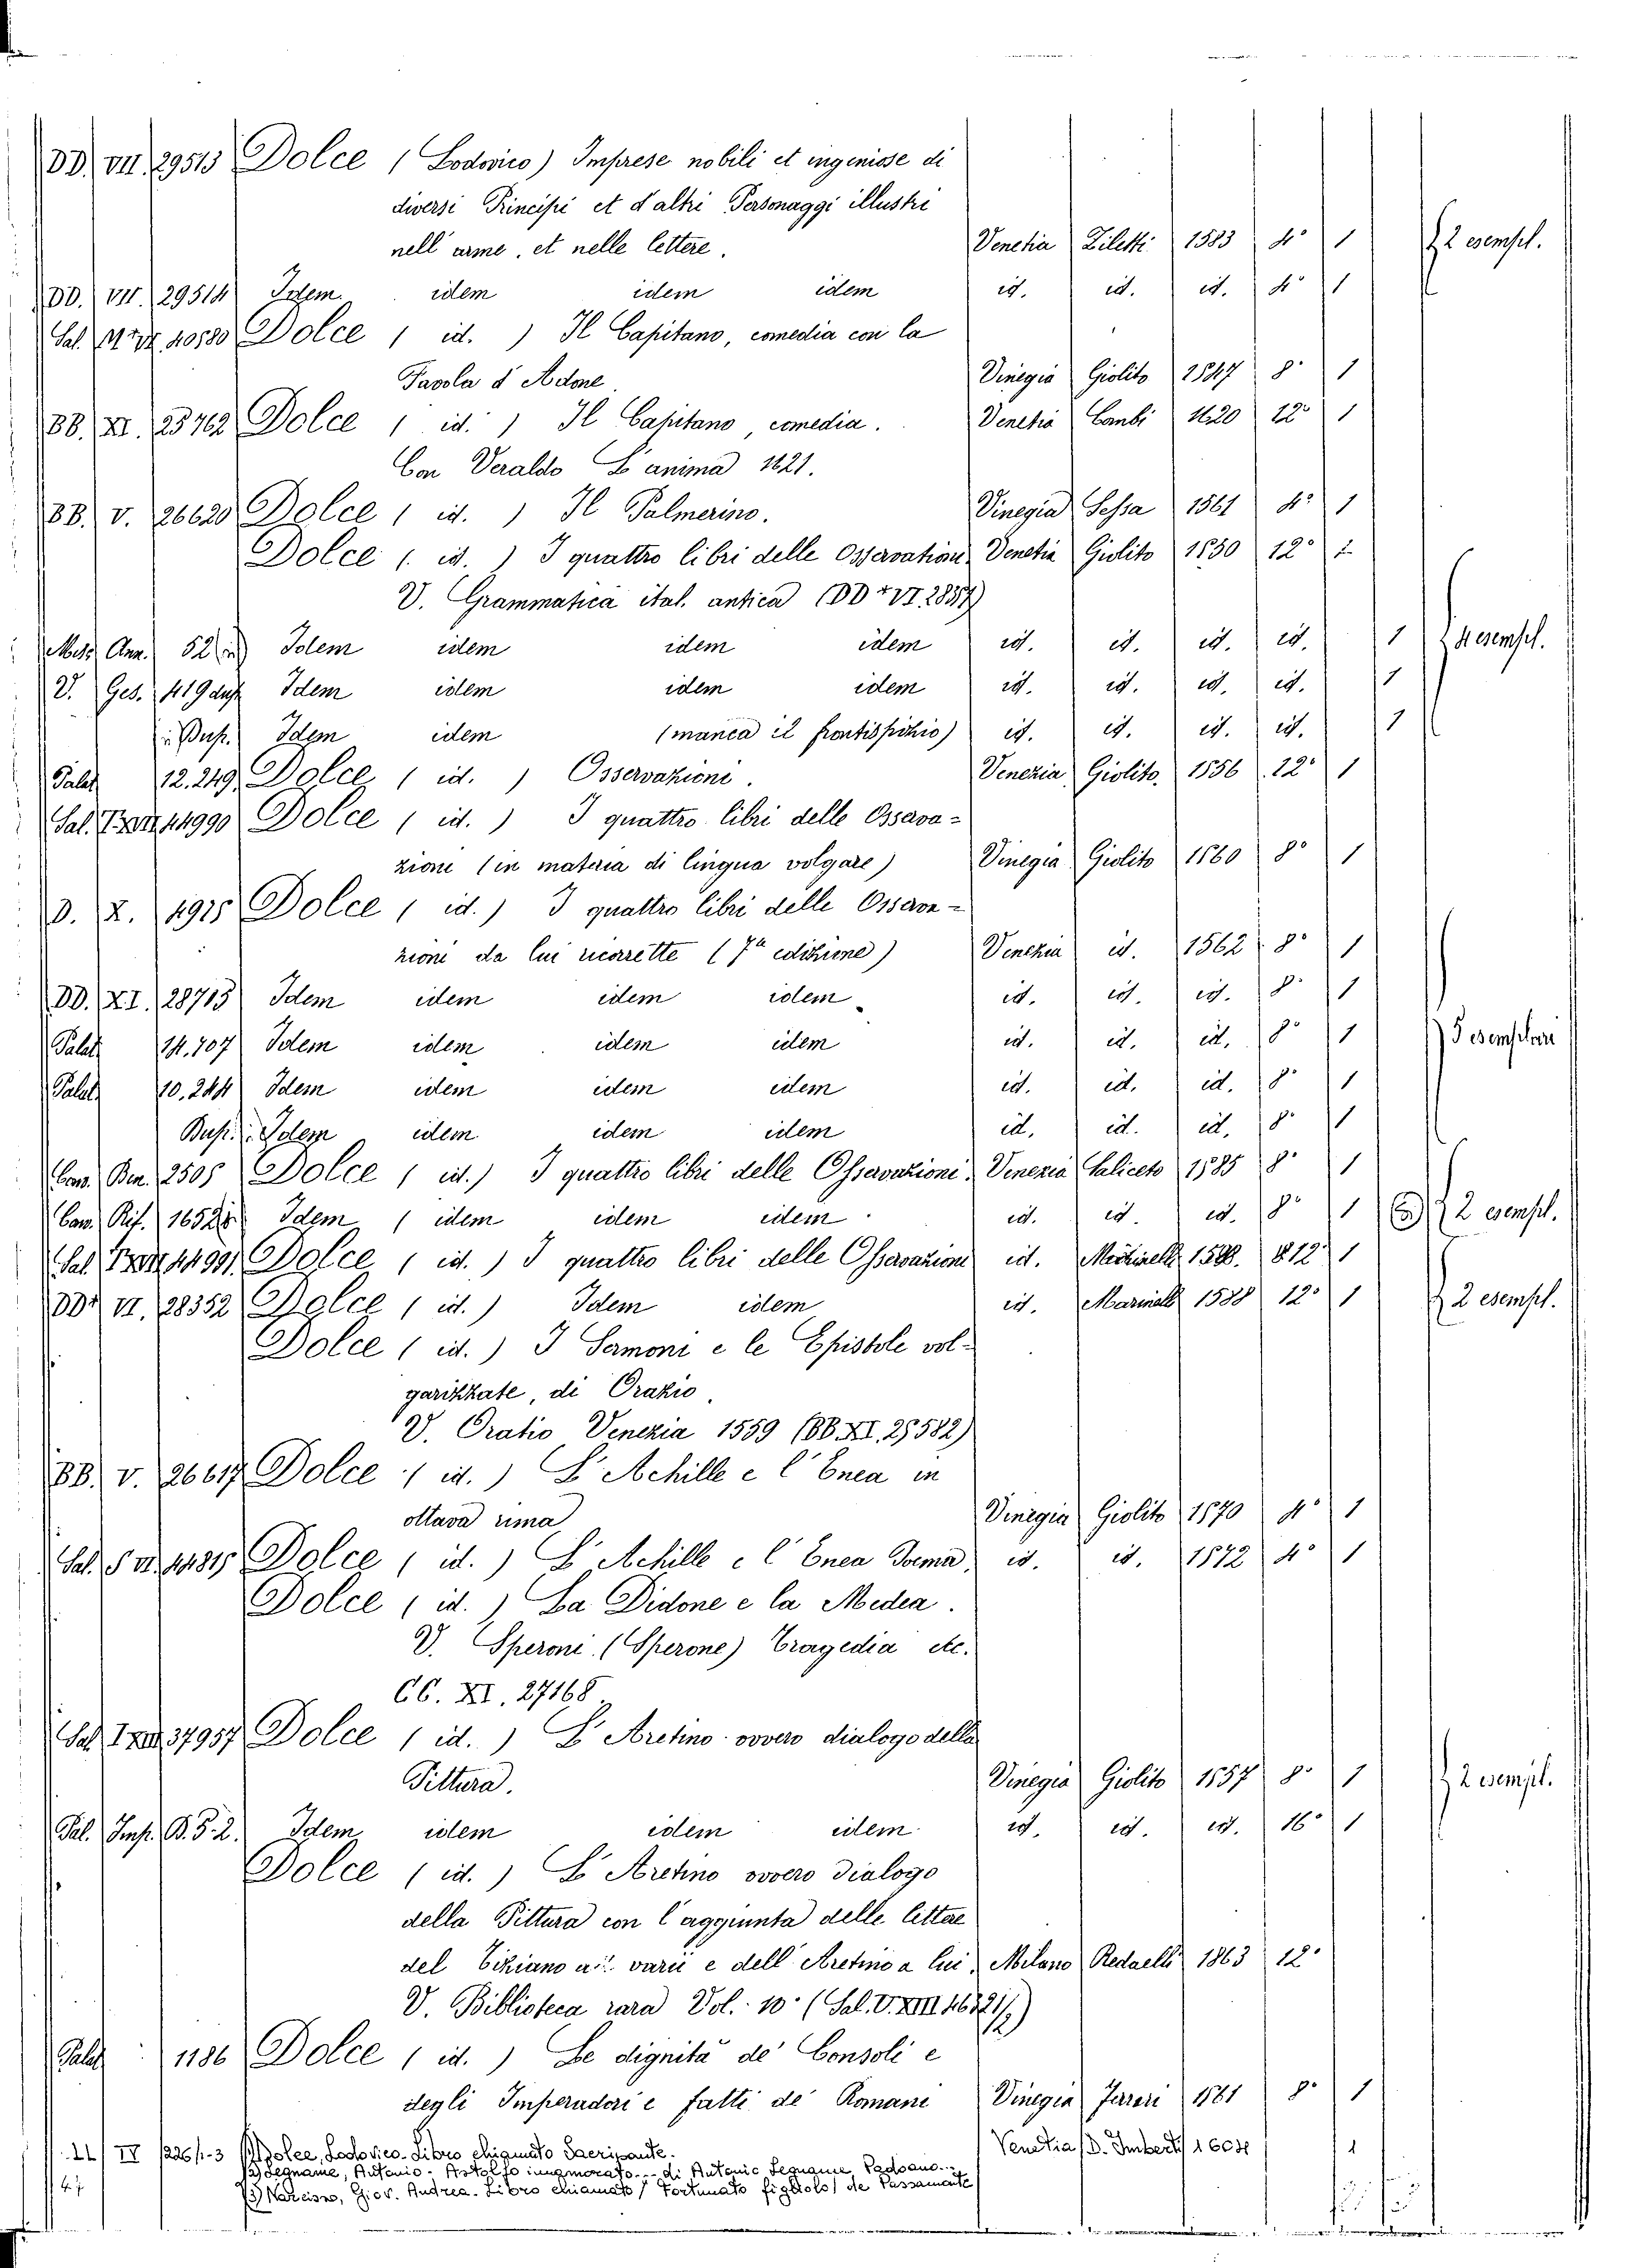 DD. VII. 29513 Dolce (Lodovico) Imprese nobili et ingeniose di
diversi Principi et d'altri Personaggi illustri
nell'arme, et nelle lettere. Venetia Ziletti 1583 4° 1 2 esempl.
DD. VII. 29514 Idem. idem idem idem id. id. id. 4° 1
Sal. 40580 Dolce ( id. ) Il Capitano, comedia con la
Favola d'Adone Vinegia Giolito 1547 8° 1
BB. XI. 25762 Dolce ( id. ) Il Capitano, comedia. Venetia Combi 1620 12° 1
Con Veraldo L'anima 1621.
BB. V. 26620 Dolce ( id. ) Il Palmerino. Vinegia Sessa 1561 4° 1
Dolce ( id. ) I quattro libri delle Osservationi Venetia Giolito 1550 12° 1
V. Grammatica ital. antica (DD + VI. 2837)
Ann. 52 Idem idem idem idem id. id. id. id. 1 4 esempl.
V. Ges. 419 Idem idem idem idem id. id. id. id. 1
Dup. Idem idem (manca il frontispizio) id. id. id. id. 1
Palat 12.249. Dolce ( id. ) Osservazioni. Venezia Giolito 1556 12° 1
Sal. 44990 Dolce ( id. ) I quattro libri delle Osserva=
zioni (in materia di lingua volgare) Vinegia Giolito 1560 8° 1
D. X. 4925 Dolce ( id. ) I quattro libri delle Osserva=
zioni da lui ricorrette (7ª edizione) Venezia id. 1562 8° 1
DD. XI. 28715 Idem idem idem idem id. id. id. 8° 1
Palat 14.707 Idem idem idem idem id. id. id. 8° 1 5 esemplari
Palat 10.244 Idem idem idem idem id. id. id. 8° 1
Dup. Idem idem idem idem id. id. id. 8° 1
Cam. Ben. 2505 Dolce ( id. ) I quattro libri delle Osservazioni. Venezia Salicato 1585 8° 1
Cam. Rif. 16528 Idem ( idem idem idem id. id. id. 8° 1 2 esempl.
Sal. 44991 Dolce ( id. ) I quattro libri delle Osservazioni id. 12° 1
DD+ VI. 28352 Dolce ( id. ) Idem idem id. Marinelli 1588 12° 1 2 esempl.
Dolce ( id. ) I Sermoni e le Epistole vol=
garizzate, di Orazio.
V. Oratio Venezia 1559 (BB. XI. 25582)
BB. V. 26617 Dolce ( id. ) L'Achille e l'Enea in
ottava rima Vinegia Giolito 1570 4° 1
Sal. Dolce ( id. ) L'Achille e l'Enea Poema id. id. 1572 4° 1
Dolce ( id. ) La Didone e la Medea.
V. Speroni (Sperone) Tragedia etc.
CC. XI. 27168.
Sal. 37957 Dolce ( id. ) L'Aretino ovvero dialogo della
Pittura. Vinegia Giolito 1557 8° 1 2 esempl.
Pal. Imp. B. 5. 2. Idem idem idem idem id. id. id. 16° 1
Dolce ( id. ) L'Aretino ovvero dialogo
della Pittura con l'aggiunta delle lettere
del Tiziano a varii e dell'Aretino a lui. Milano Redaelli 1863 12°
V. Biblioteca rara Vol. 10° (Sal. V. XIII
Palat 1186 Dolce ( id. ) Le dignità de' Consoli e
degli Imperadori e fatti de' Romani Vinegia 1561 8° 1
IV 226/1-3 1) Dolce, Lodovico. Libro chiamato Sacripante. Venetia D. Imberti 1604 1
2) Legname, Antonio. Astolfo innamorato... di Antonio Legname Padoano...
47 3) Narcisso, Giov. Andrea. Libro chiamato Fortunato figliolo de Passamonte